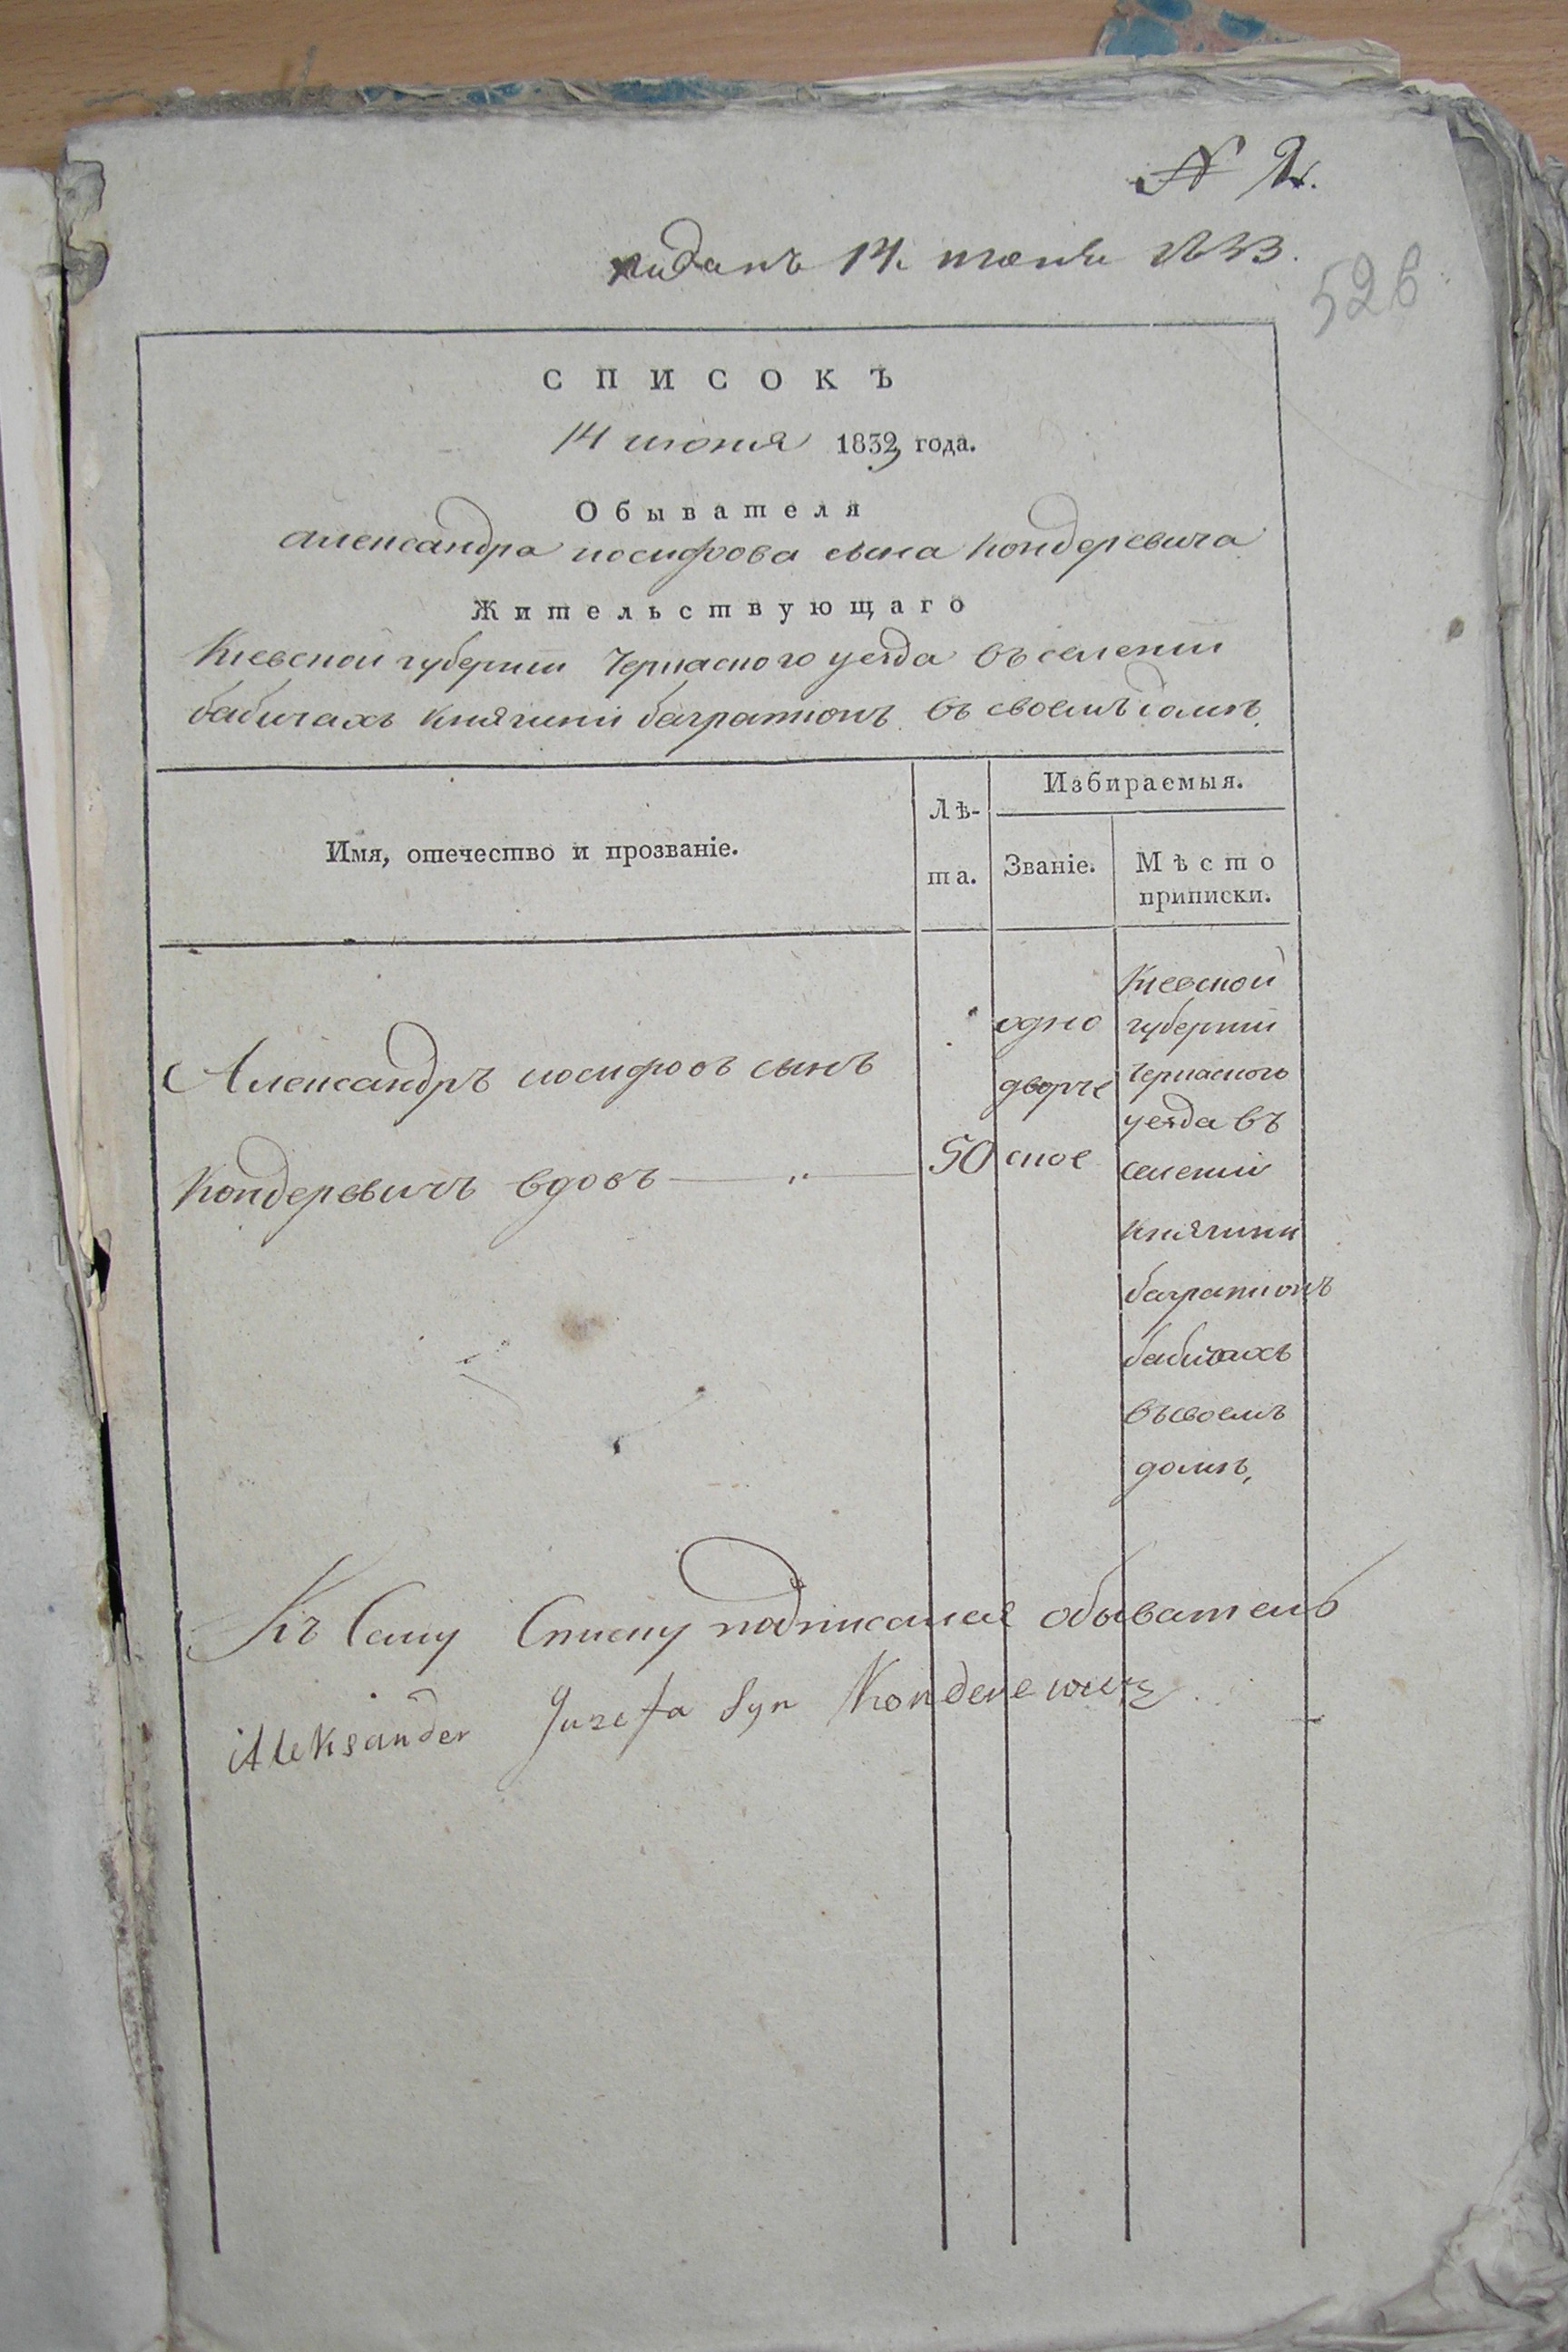 N 2.
поданъ 14 июня 1833.
526
СПИСОКЪ
14 июня 1833 года.
Обывателя
александра иосифова сына кондеревича
Жительствующаго
Киевской губернии Черкаского уезда въ селении
бабичахъ княгини багратионъ въ своемъ доме.
Имя, отечество и прозваніе.
Лѣ-
та.
Избираемыя.
Званіе.
Мѣсто
приписки.
Александръ иосифовъ сынъ
кондеревичъ вдовъ — „ —
50
одно
дворче
ское
Киевской
губернии
Черкаского
уезда въ
селении
княгини
багратионъ
бабичахъ
въ своемъ
доме,
Къ Сему Списку подписался обыватель
Aleksander Juzefa Syn Konderewicz